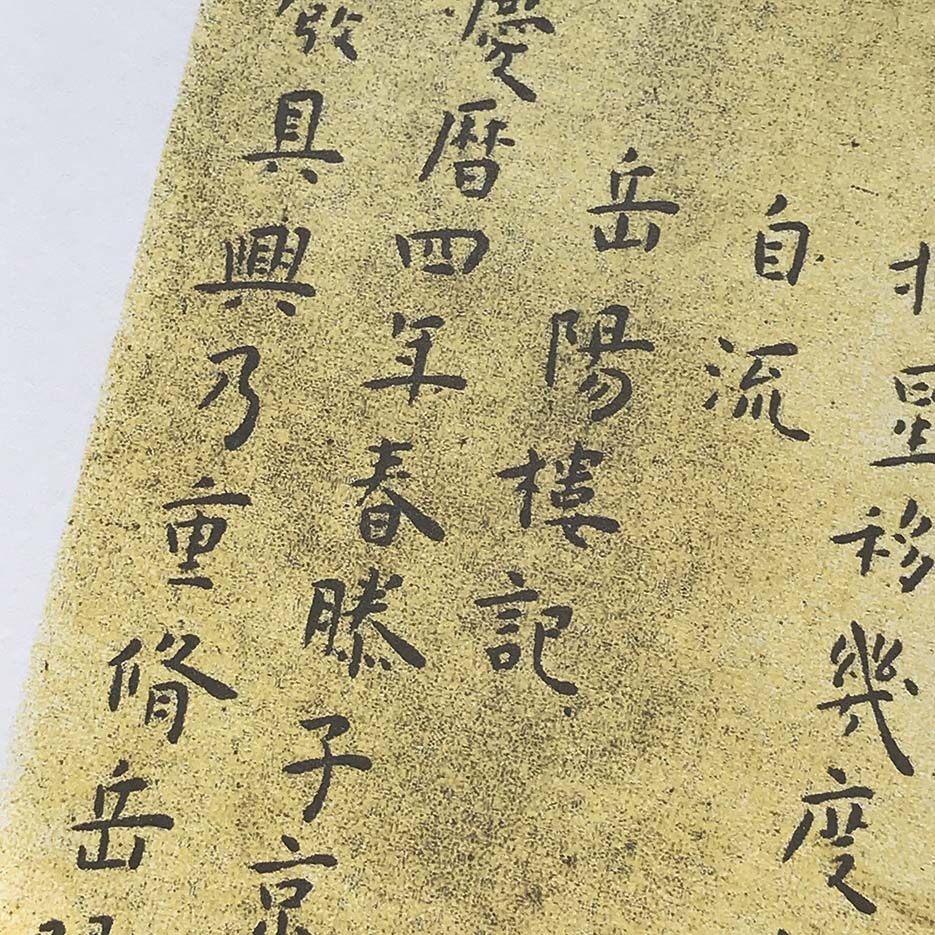 星移幾度
自流
岳陽樓記
慶曆四年春滕子京
具興乃重脩岳